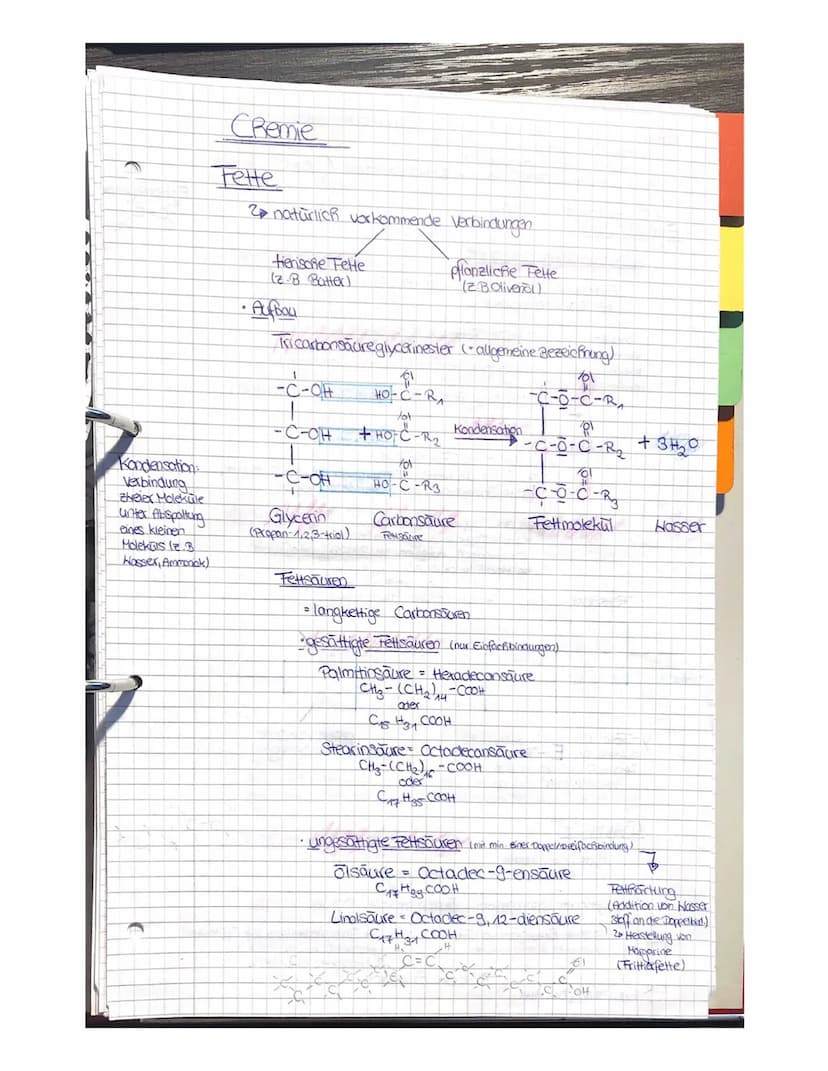 Chemie
Fette
↳ natürlich vorkommende Verbindungen
tierische Fette
(z.B Butter)
pflanzliche Fette
(z.B Olivenöl)
• Aufbau
Tricarbonsäureglycerinester (= allgemeine Bezeichnung)
-C-OH HO-C-R₁
-C-OH + HO-C-R₂ Kondensation
-C-OH HO-C-R₃
-C-O-C-R₁
-C-O-C-R₂ + 3H₂O
-C-O-C-R₃
Glycerin
(Propan-1,2,3-triol)
Carbonsäure
Fettsäure
Fettmolekül
Wasser
Kondensation:
Verbindung
zweier Moleküle
unter Abspaltung
eines kleinen
Moleküls (z.B
Wasser, Ammoniak)
Fettsäuren
= langkettige Carbonsäuren
• gesättigte Fettsäuren (nur Einfachbindungen)
Palmitinsäure = Hexadecansäure
CH₃-(CH₂)₁₄-COOH
oder
C₁₅H₃₁COOH
Stearinsäure = Octadecansäure
CH₃-(CH₂)₁₆-COOH
oder
C₁₇H₃₅COOH
• ungesättigte Fettsäuren (mit min. einer Doppel/Dreifachbindung)
Ölsäure = Octadec-9-ensäure
C₁₇H₃₃COOH
Linolsäure = Octadec-9,12-diensäure
C₁₇H₃₁COOH
Fetthärtung
(Addition von Wasser
stoff an die Doppelbind.)
↳ Herstellung von
Margarine
(Frittierfette)
H H
C=C
OH